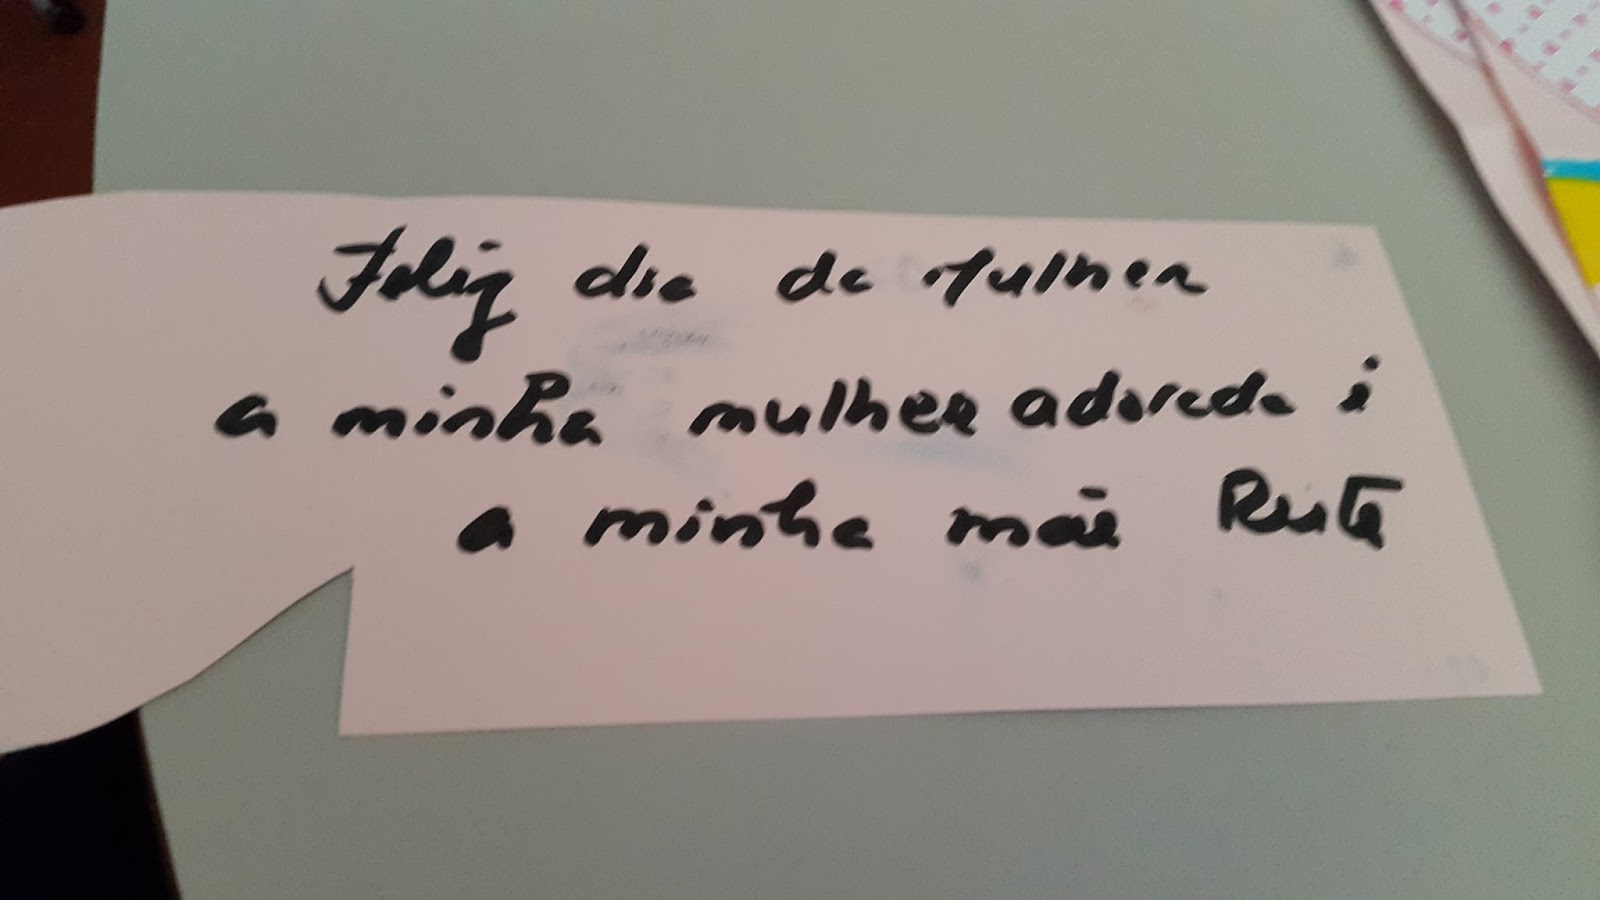 Feliz dia da Mulher
a minha mulher adorada é
a minha mãe Rute